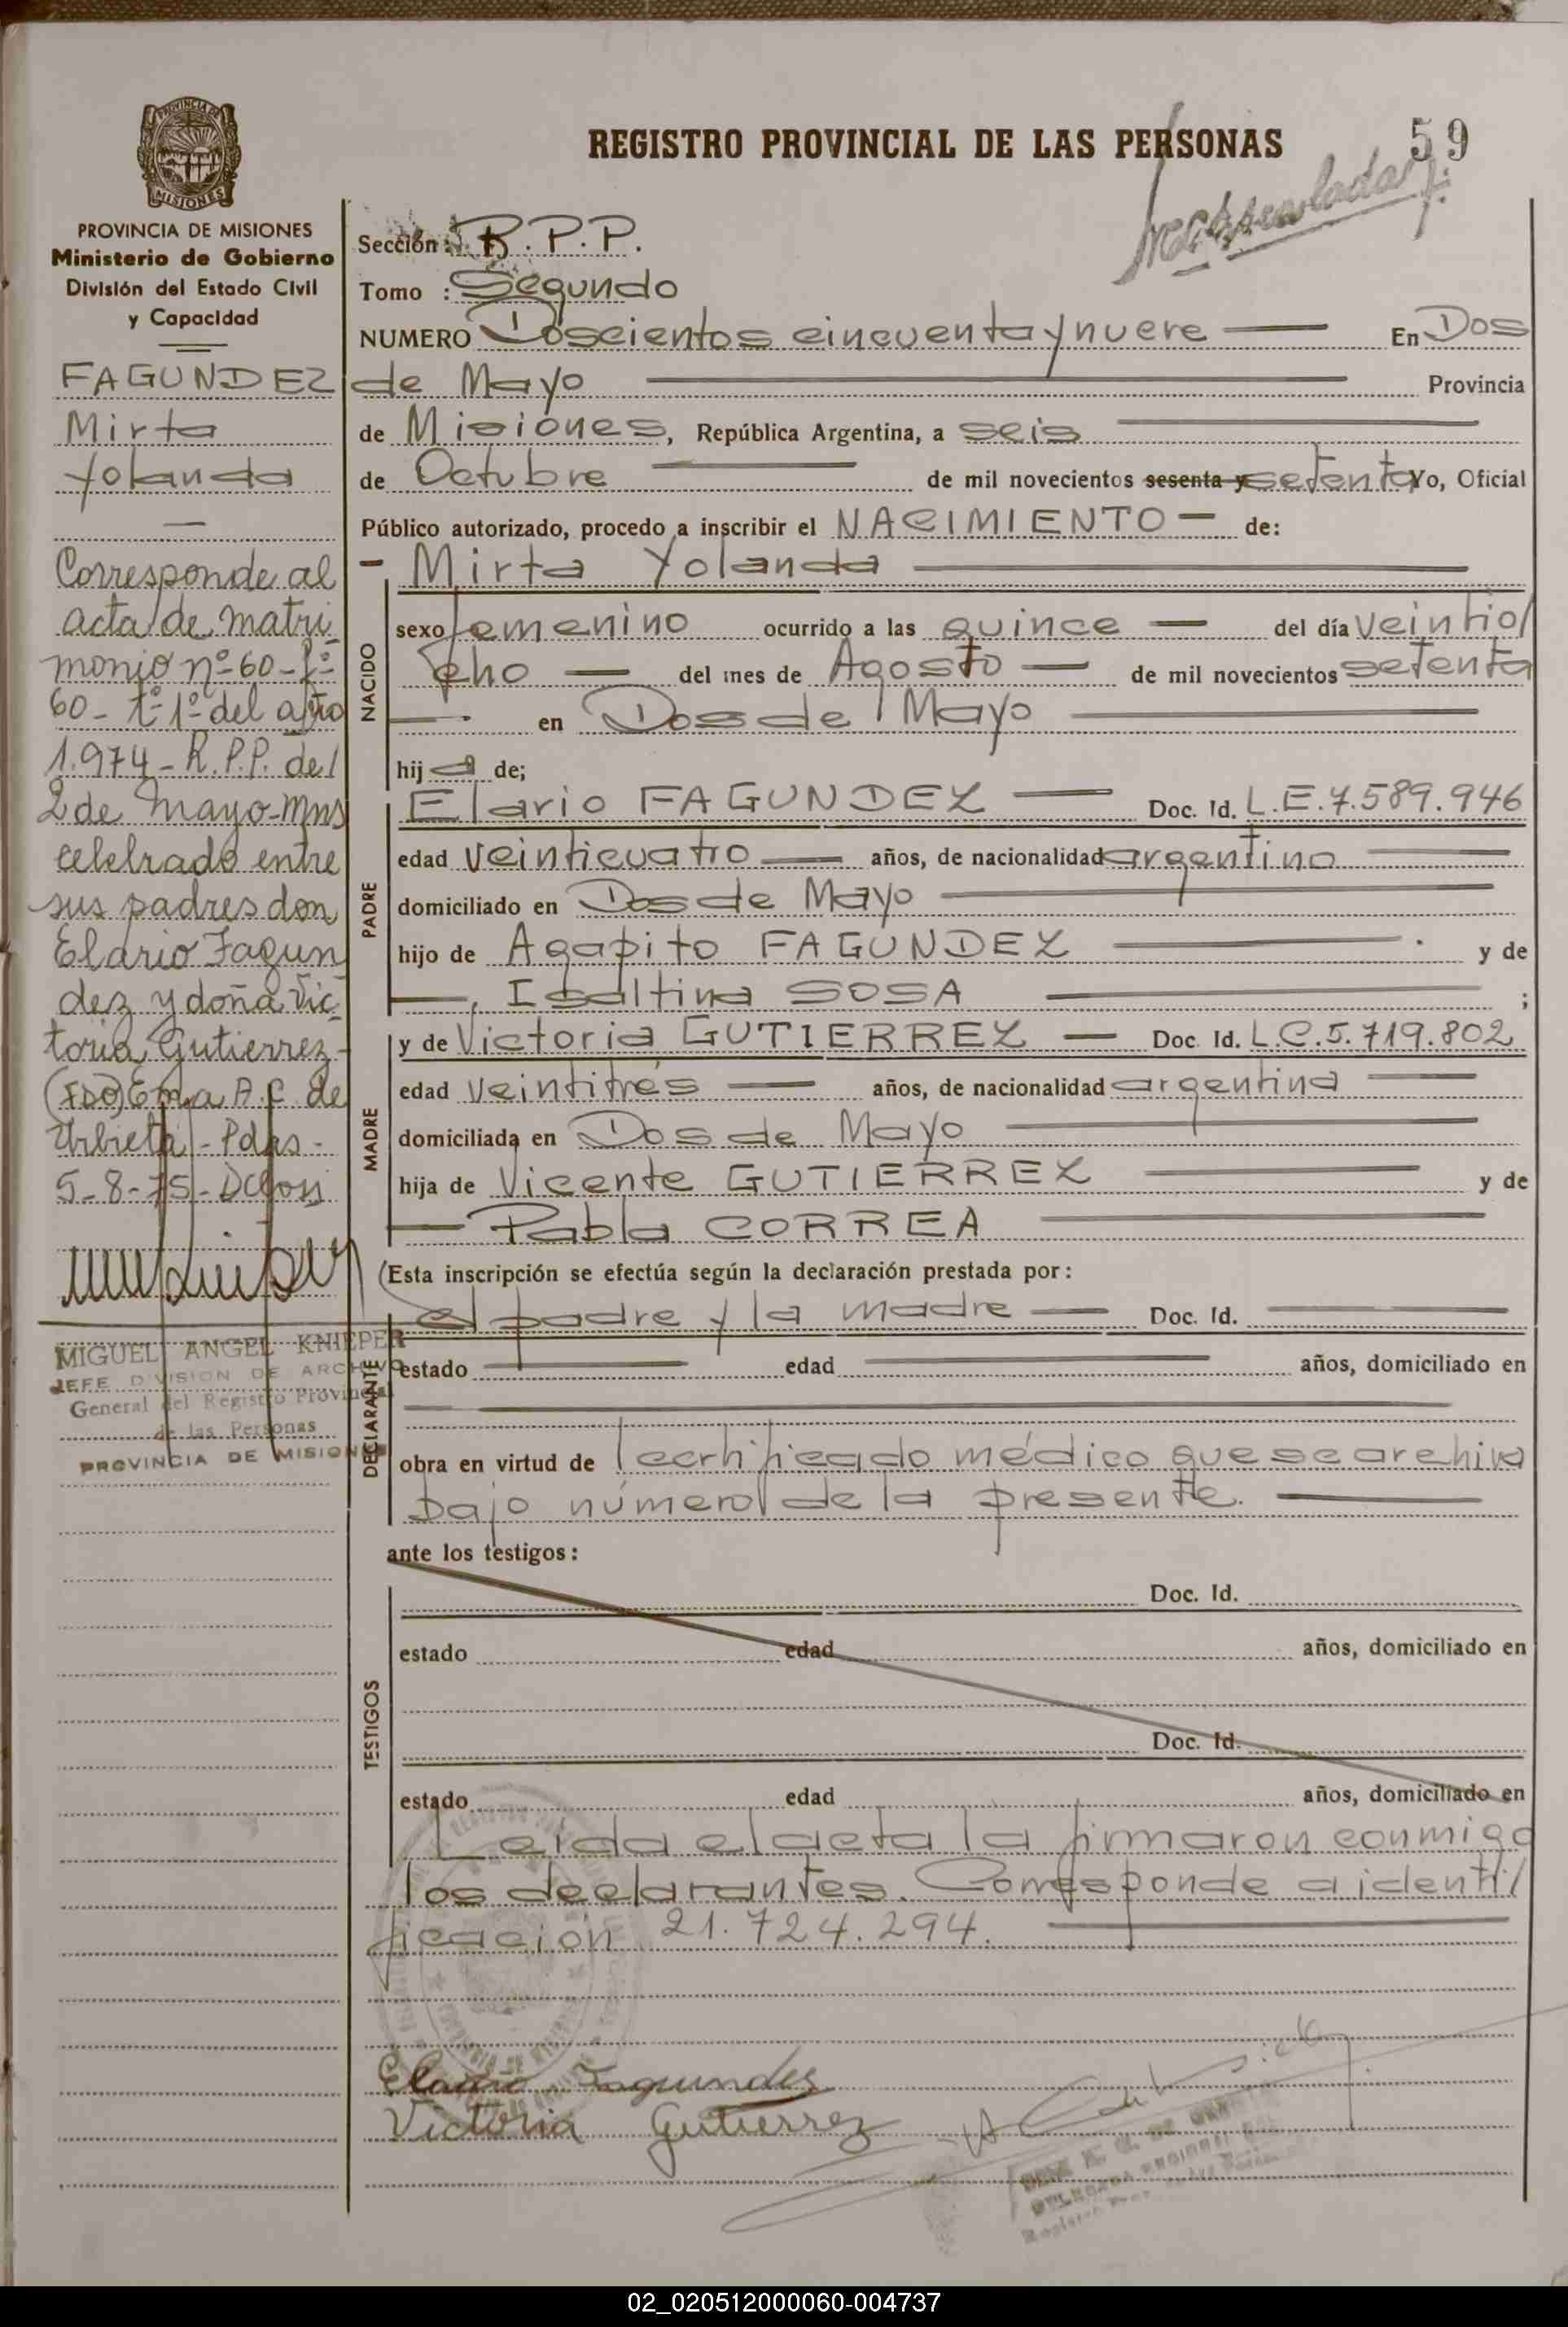 REGISTRO PROVINCIAL DE LAS PERSONAS
59
PROVINCIA DE MISIONES
Ministerio de Gobierno
División del Estado Civil
y Capacidad
FAGUNDEZ
Mirta
Yolanda
Corresponde al
acta de matri
monio nº 60 - fº
60 - tº 1º del año
1.974 - R.P.P. de/
2 de Mayo - Mns
celebrado entre
sus padres don
Elario Fagun
dez y doña Vic
toria Gutierrez -
(FDO) Ema A. C. de
Urbieta - Pdas -
5-8-75 -
MIGUEL ANGEL KNIEPER
JEFE DIVISION DE ARCHIVO
General del Registro Provincial
de las Personas
PROVINCIA DE MISIONES
Sección: R.P.P.
Tomo : Segundo
NUMERO Doscientos cincuenta y nueve En Dos
de Mayo Provincia
de Misiones, República Argentina, a seis
de Octubre de mil novecientos sesenta y setenta Yo, Oficial
Público autorizado, procedo a inscribir el NACIMIENTO - de:
- Mirta Yolanda
NACIDO
sexo femenino ocurrido a las quince del día veintio/
cho del mes de Agosto de mil novecientos setenta
en Dos de Mayo
hij a de;
PADRE
Elario FAGUNDEZ Doc. Id. L.E.7.589.946
edad veinticuatro años, de nacionalidad argentino
domiciliado en Dos de Mayo
hijo de Agapito FAGUNDEZ y de
, Isaltina SOSA ;
MADRE
y de Victoria GUTIERREZ Doc. Id. L.C.5.719.802
edad veintitrés años, de nacionalidad argentina
domiciliada en Dos de Mayo
hija de Vicente GUTIERREZ y de
Pabla CORREA
(Esta inscripción se efectúa según la declaración prestada por:
DECLARANTE
el padre y la madre Doc. Id.
estado edad años, domiciliado en
obra en virtud de certificado médico que se archiva
bajo número de la presente.
ante los testigos:
TESTIGOS
Doc. Id.
estado edad años, domiciliado en
Doc. Id.
estado edad años, domiciliado en
Leída el acta la firmaron conmigo
los declarantes. Corresponde a identi/
ficación 21.724.294.
Elario Fagundes
Victoria Gutierrez
02_020512000060-004737